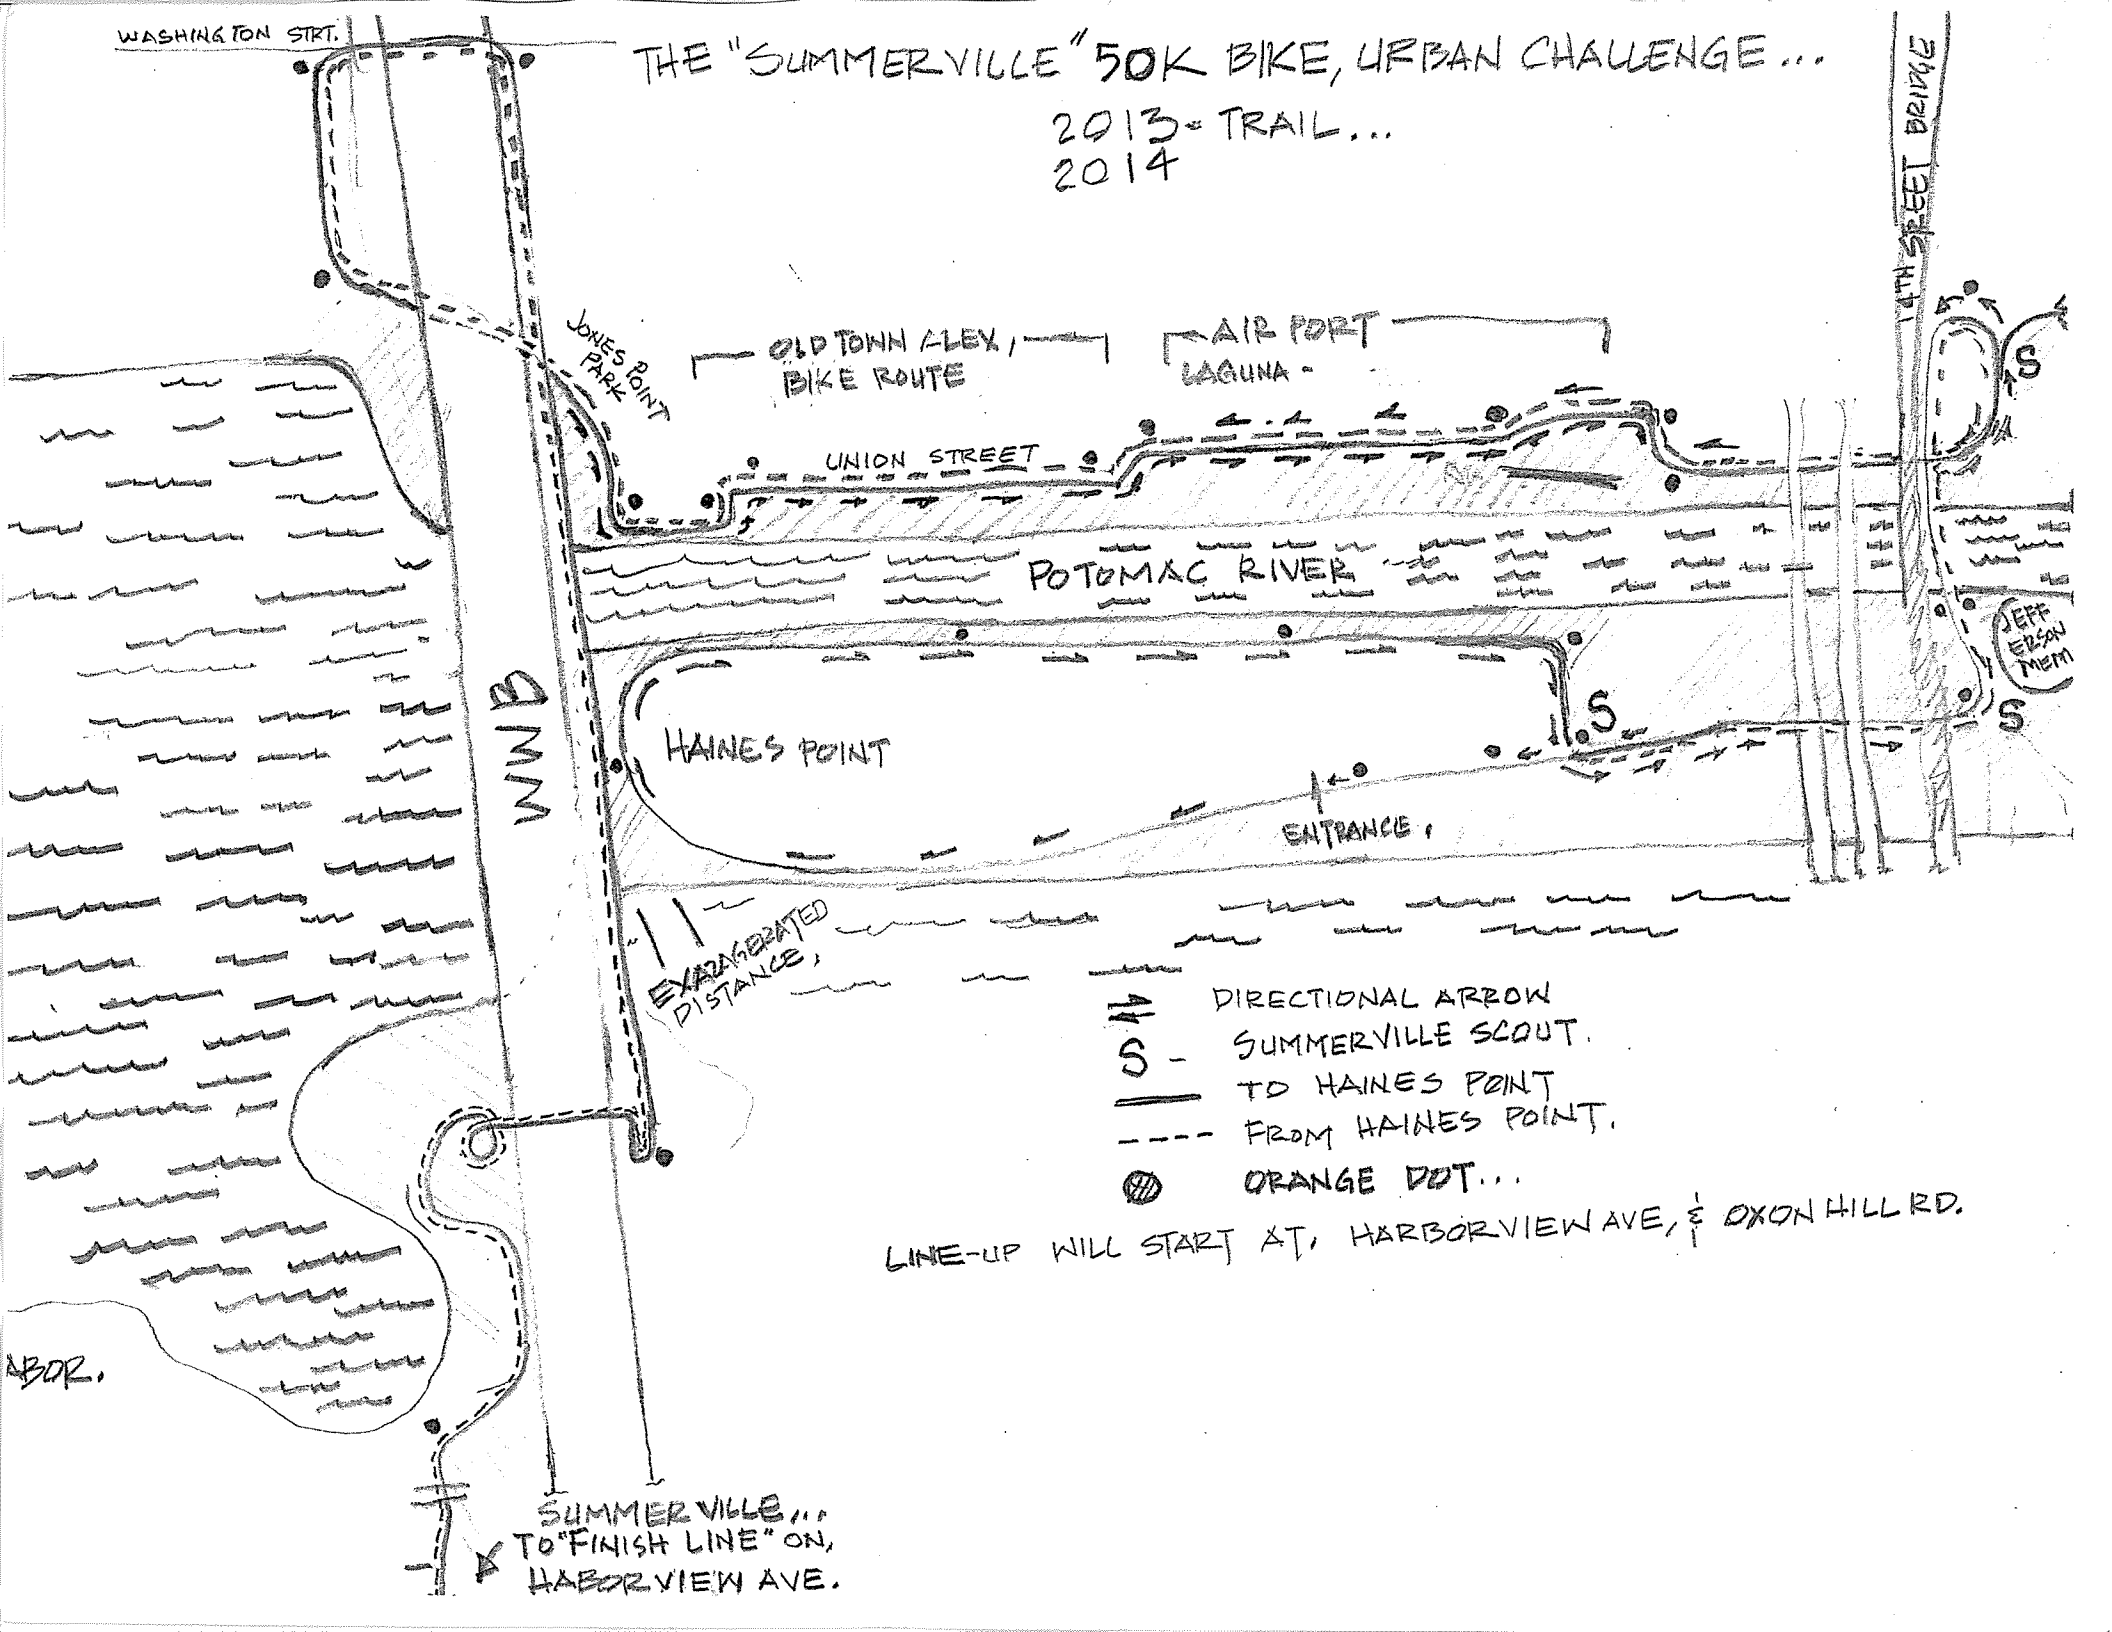 WASHINGTON STRT.
THE "SUMMERVILLE" 50K BIKE, URBAN CHALLENGE...
2013- TRAIL...
2014
14TH STREET BRIDGE
JONES POINT
PARK
OLD TOWN ALEX,
BIKE ROUTE
AIR PORT
LAGUNA -
S
UNION STREET
POTOMAC RIVER
JEFF
ERSON
MEM
WWB
HAINES POINT
S
S
ENTRANCE.
EXAZAGERATED
DISTANCE,
DIRECTIONAL ARROW
S - SUMMERVILLE SCOUT.
TO HAINES POINT
FROM HAINES POINT.
ORANGE DOT...
LINE-UP WILL START AT, HARBORVIEW AVE, & OXON HILL RD.
ABOR.
SUMMERVILLE...
TO "FINISH LINE" ON,
HABORVIEW AVE.